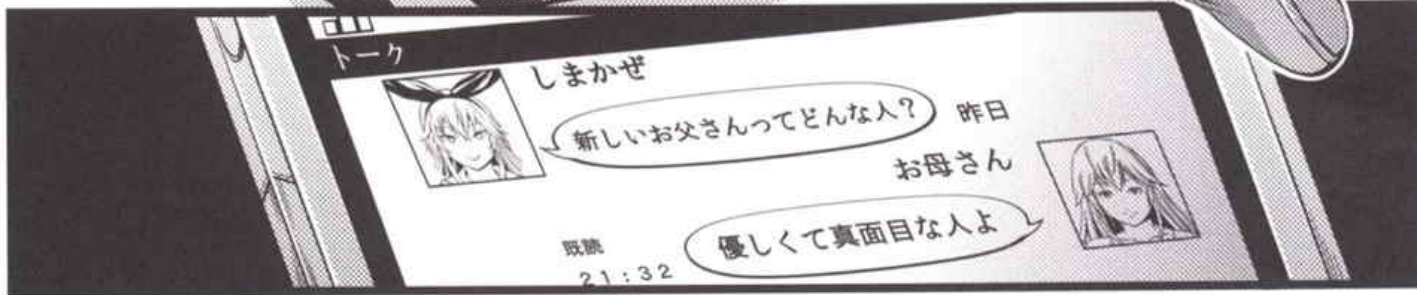 トーク
しまかぜ
新しいお父さんってどんな人？
昨日
お母さん
優しくて真面目な人よ
既読
21:32